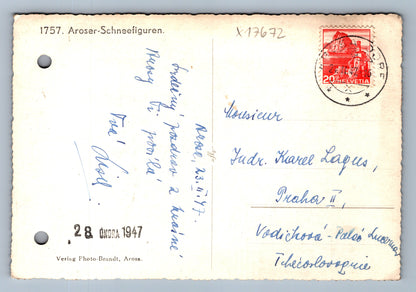 1757. Aroser-Schneefiguren.
X17672
20 HELVETIA
Arosa, 23.II.47.
Srdečný pozdrav z krásné
Arosy Ti posílá
Tvá
Monsieur
Judr. Karel Lagus,
Praha II,
Vodičková - Palác Lucerna
Tchécoslovaquie
28. ÚNORA 1947
Verlag Photo-Brandt, Arosa.